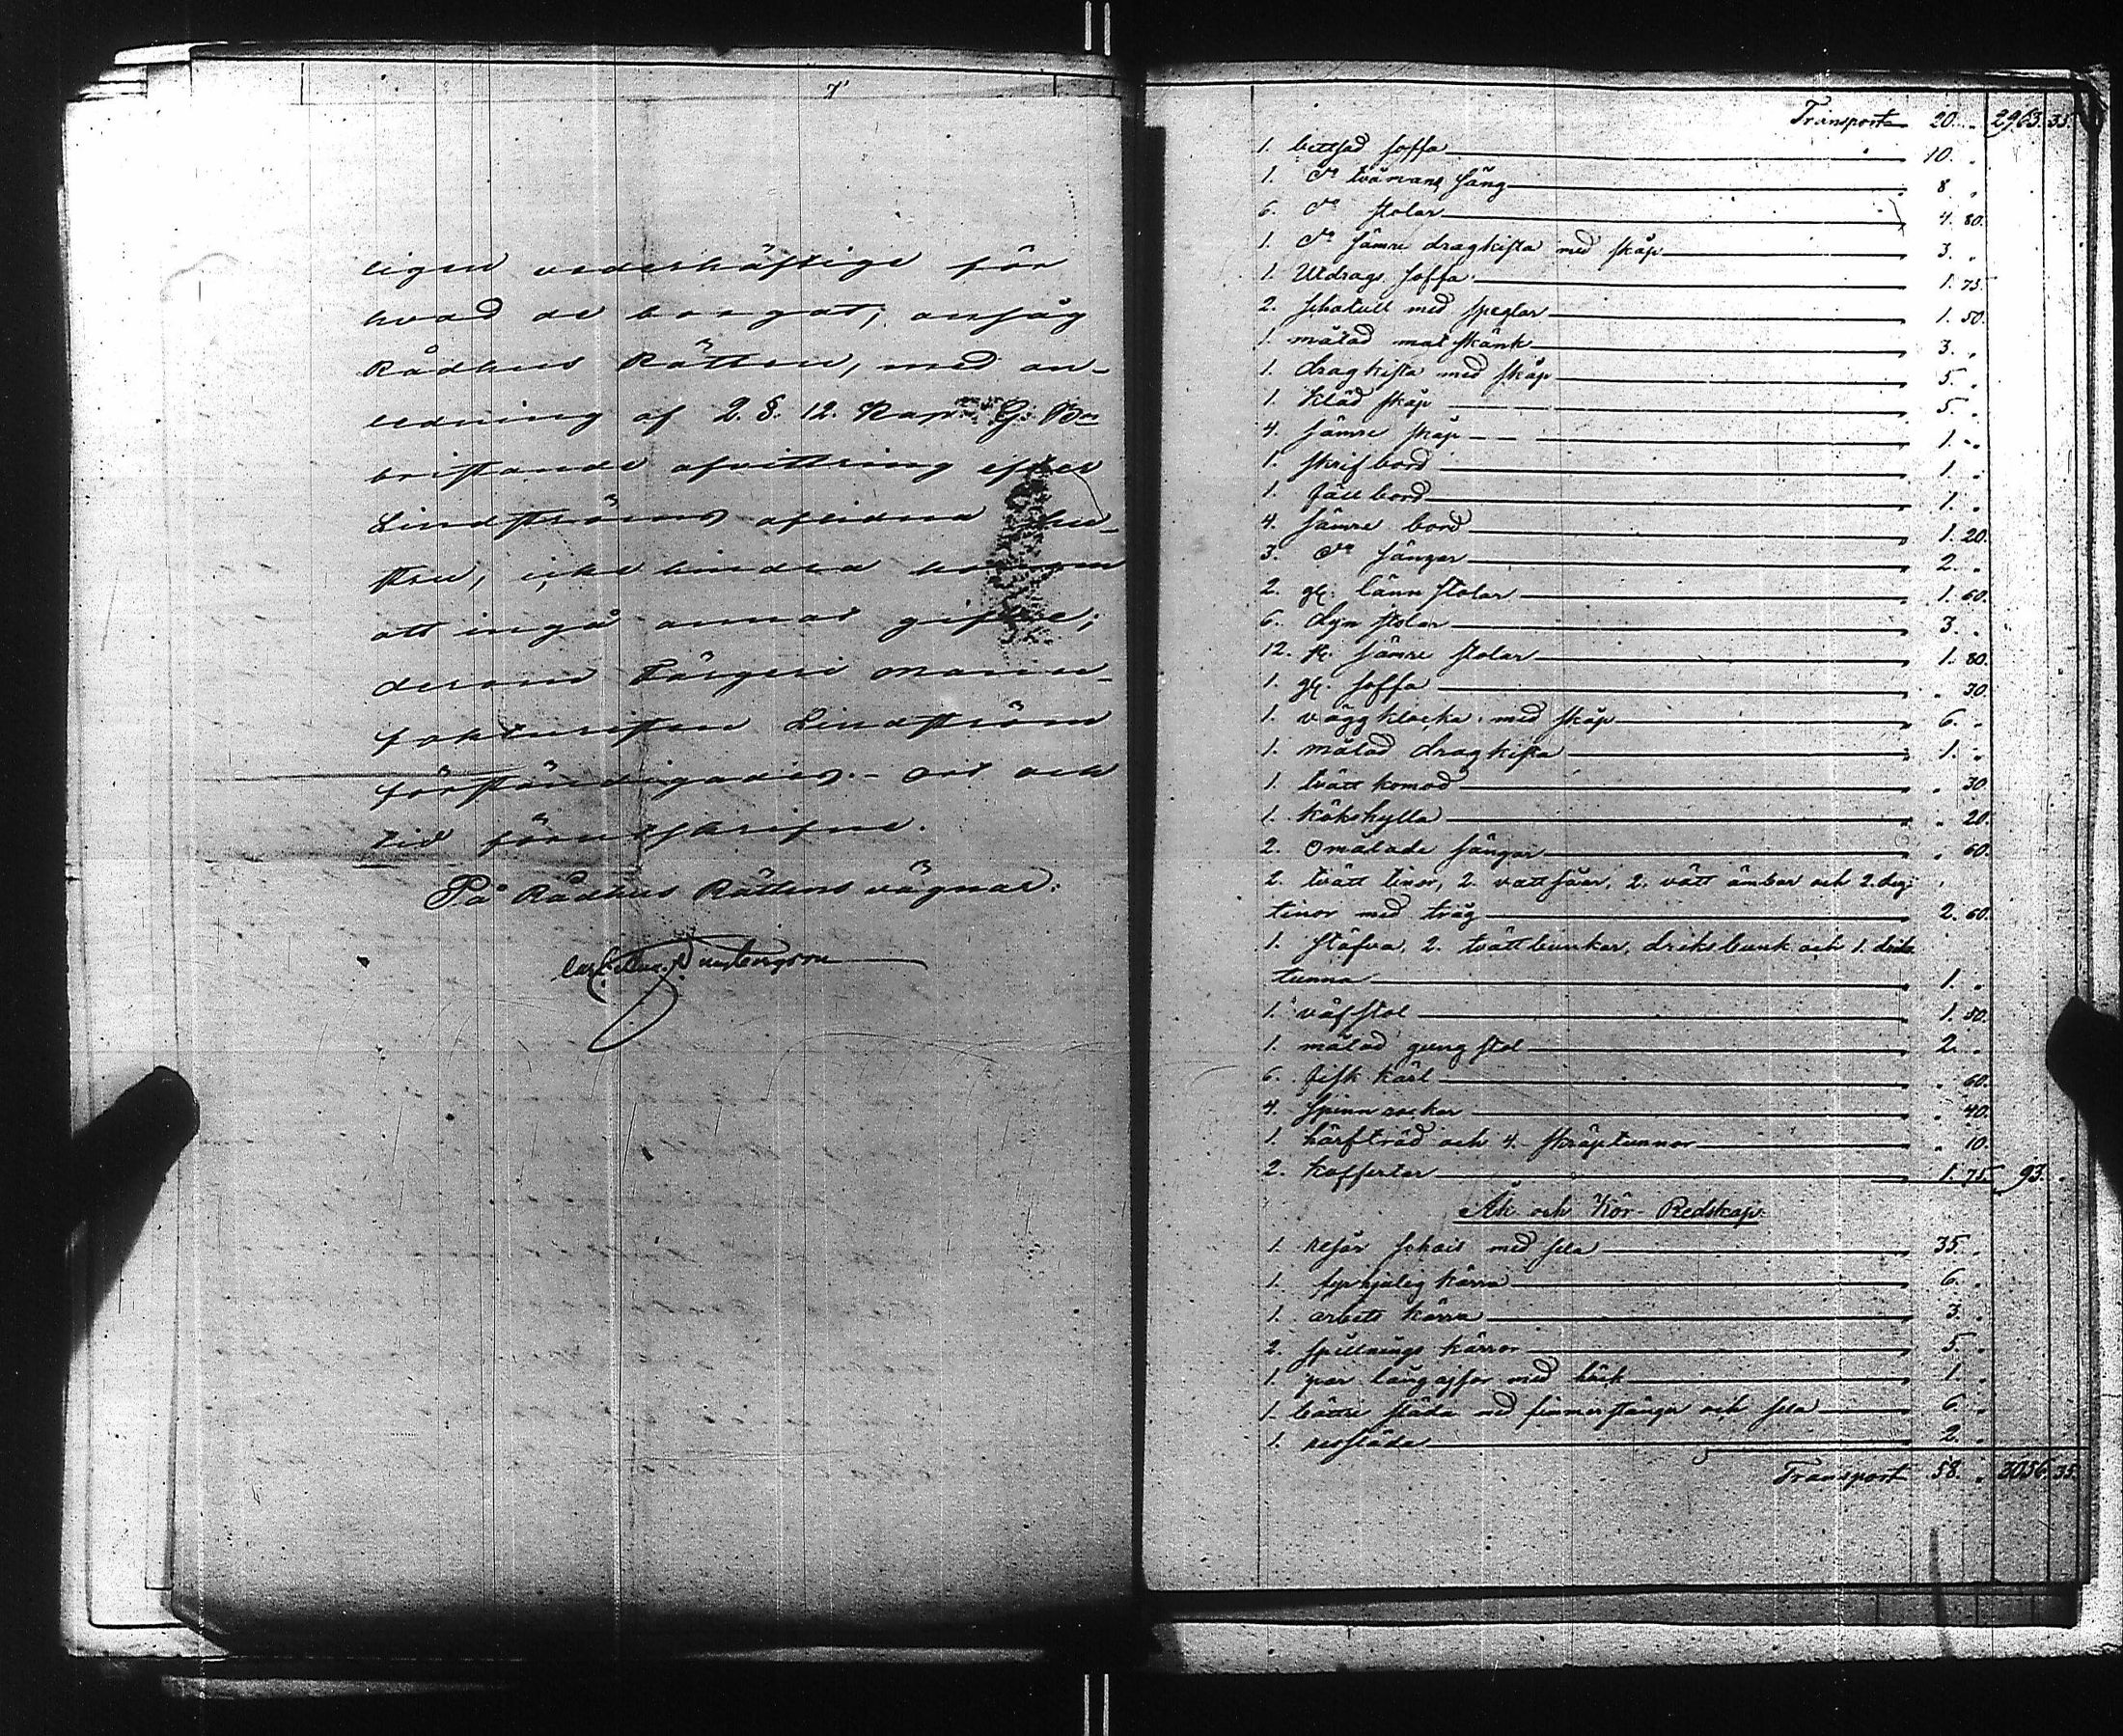 7
ligen vederhäftige för
hvad de borgat; ansåg
Rådhus Rätten, med an-
ledning af 2. §. 12. Kap. G. B.
bristande afvittring efter
Lindströms aflidna hu-
stru, icke hindra honom
att ingå annat gifte;
derom Färgeri manu-
fakturisten Lindström
förständigades. – Ort och
tid förutskrifne.
På Rådhus Rättens vägnar:
Transport 20. „ 2963. 35.
1. bettsad soffa 10. „
1. do tvåmans säng 8 „
6. do stolar 4. 80.
1. do sämre dragkista med skåp 3. „
1. Utdrags soffa 1. 75
2. schatull med speglar 1. 50.
1. målad mat skänk 3. „
1. dragkista med skåp 5. „
1. kläd skåp 5. „
4. sämre skåp 1. „
1. skrif bord 1. „
1. fäll bord 1. „
4. sämre bord 1. 20.
3. do sängar 2. „
2. gl. länn stolar 1. 60.
6. Dyn stolar 3. „
12. st. sämre stolar 1. 80.
1. gl. soffa „ 30.
1. väggklocka med skåp 6. „
1. målad dragkista 1. „
1. tvätt komod „ 30
1. kökshylla „ 20.
2. omålade sängar „ 60.
2. tvätt tinor, 2. vatt såar, 2. vatt ämbar och 2. deg-
tinor med tråg 2. 60.
1. stäfva, 2. tvättbunkar, driksbunk och 1. driks
tunna 1. „
1. väfstol 1. 50.
1. målad gungstol 2. „
6. fisk kärl „ 60.
4. spinn rockar „ 40.
1. härfträd och 4. skräptunnor „ 10.
2. koffertar 1. 75. 93. „
Åk och Kör-Redskap:
1. resår schäs med sela 35. „
1. fyrhjulig kärra 6. „
1. arbets kärra 3. „
2. spillnings kärror 5. „
1. par med häck 1 „
1. bättre släda med fimmerstänger och sela 6 „
1. ressläda 2. „
Transport 58. „ 3056. 35.